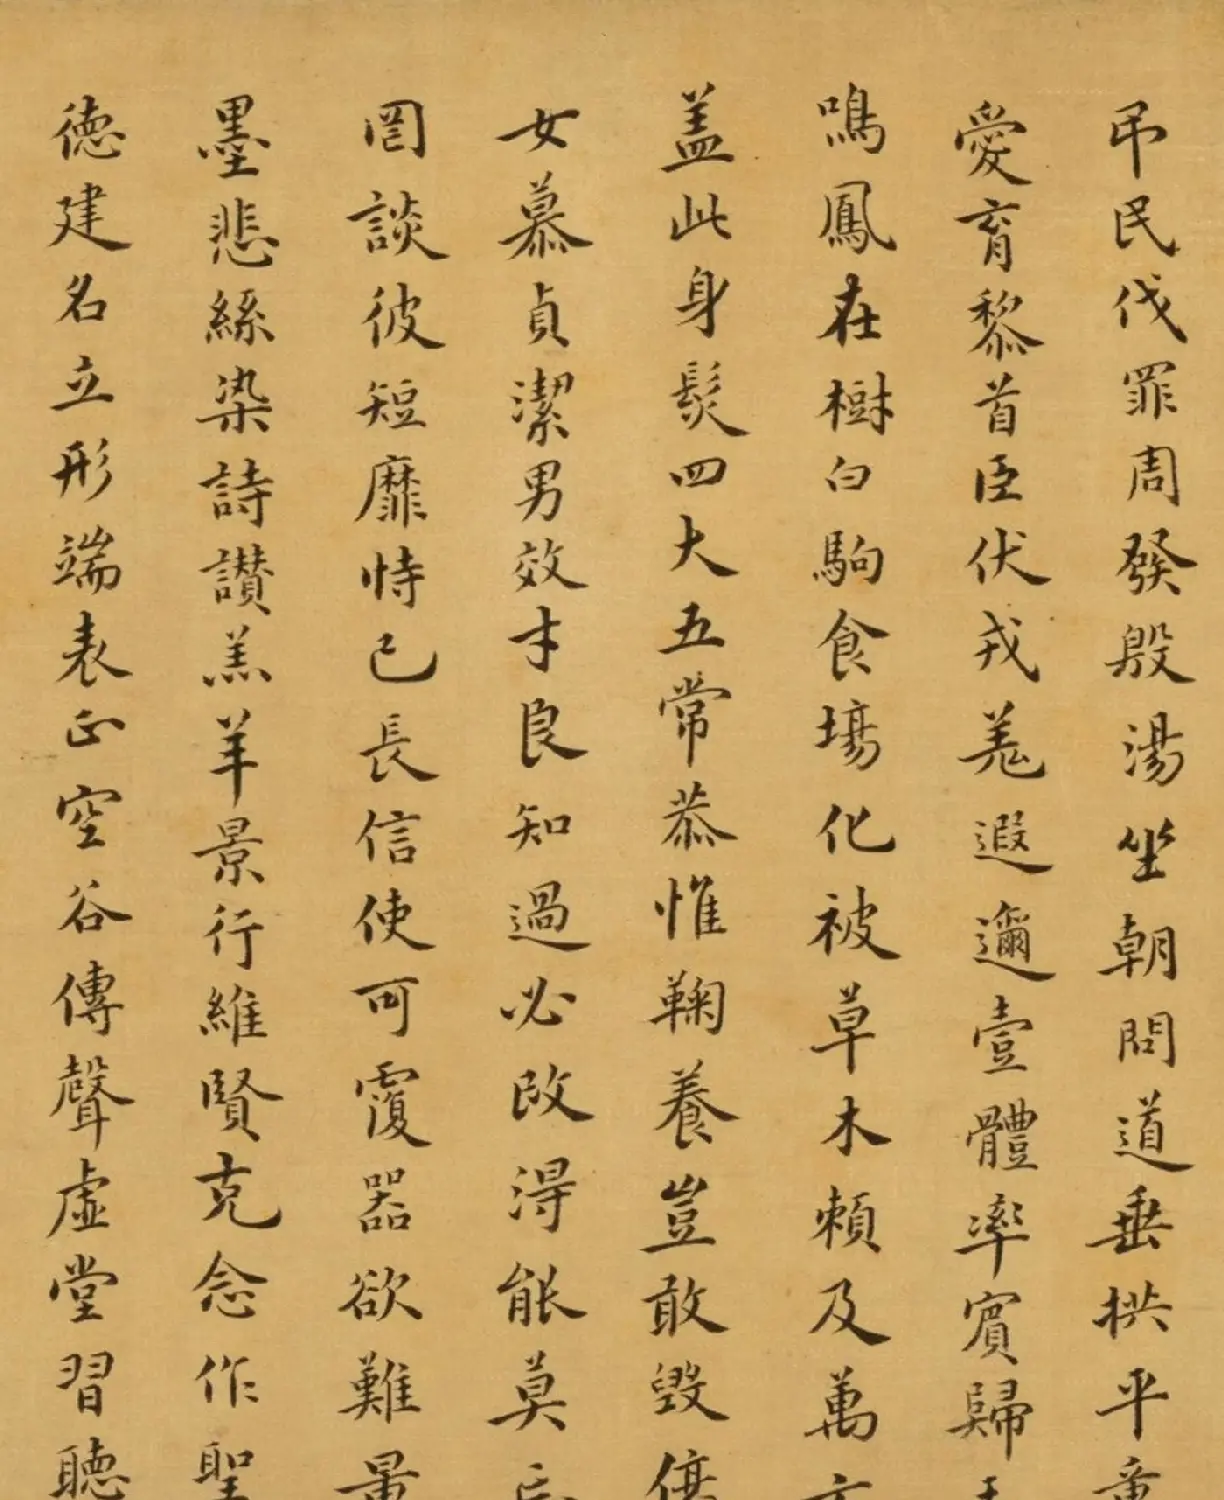 吊民伐罪周發殷湯坐朝問道垂拱平章
愛育黎首臣伏戎羌遐邇壹體率賓歸
鳴鳳在樹白駒食場化被草木賴及萬方
盖此身髮四大五常恭惟鞠養豈敢毀傷
女慕貞潔男效才良知過必改得能莫忘
罔談彼短靡恃己長信使可覆器欲難量
墨悲絲染詩讚羔羊景行維賢克念作聖
德建名立形端表正空谷傳聲虛堂習聽